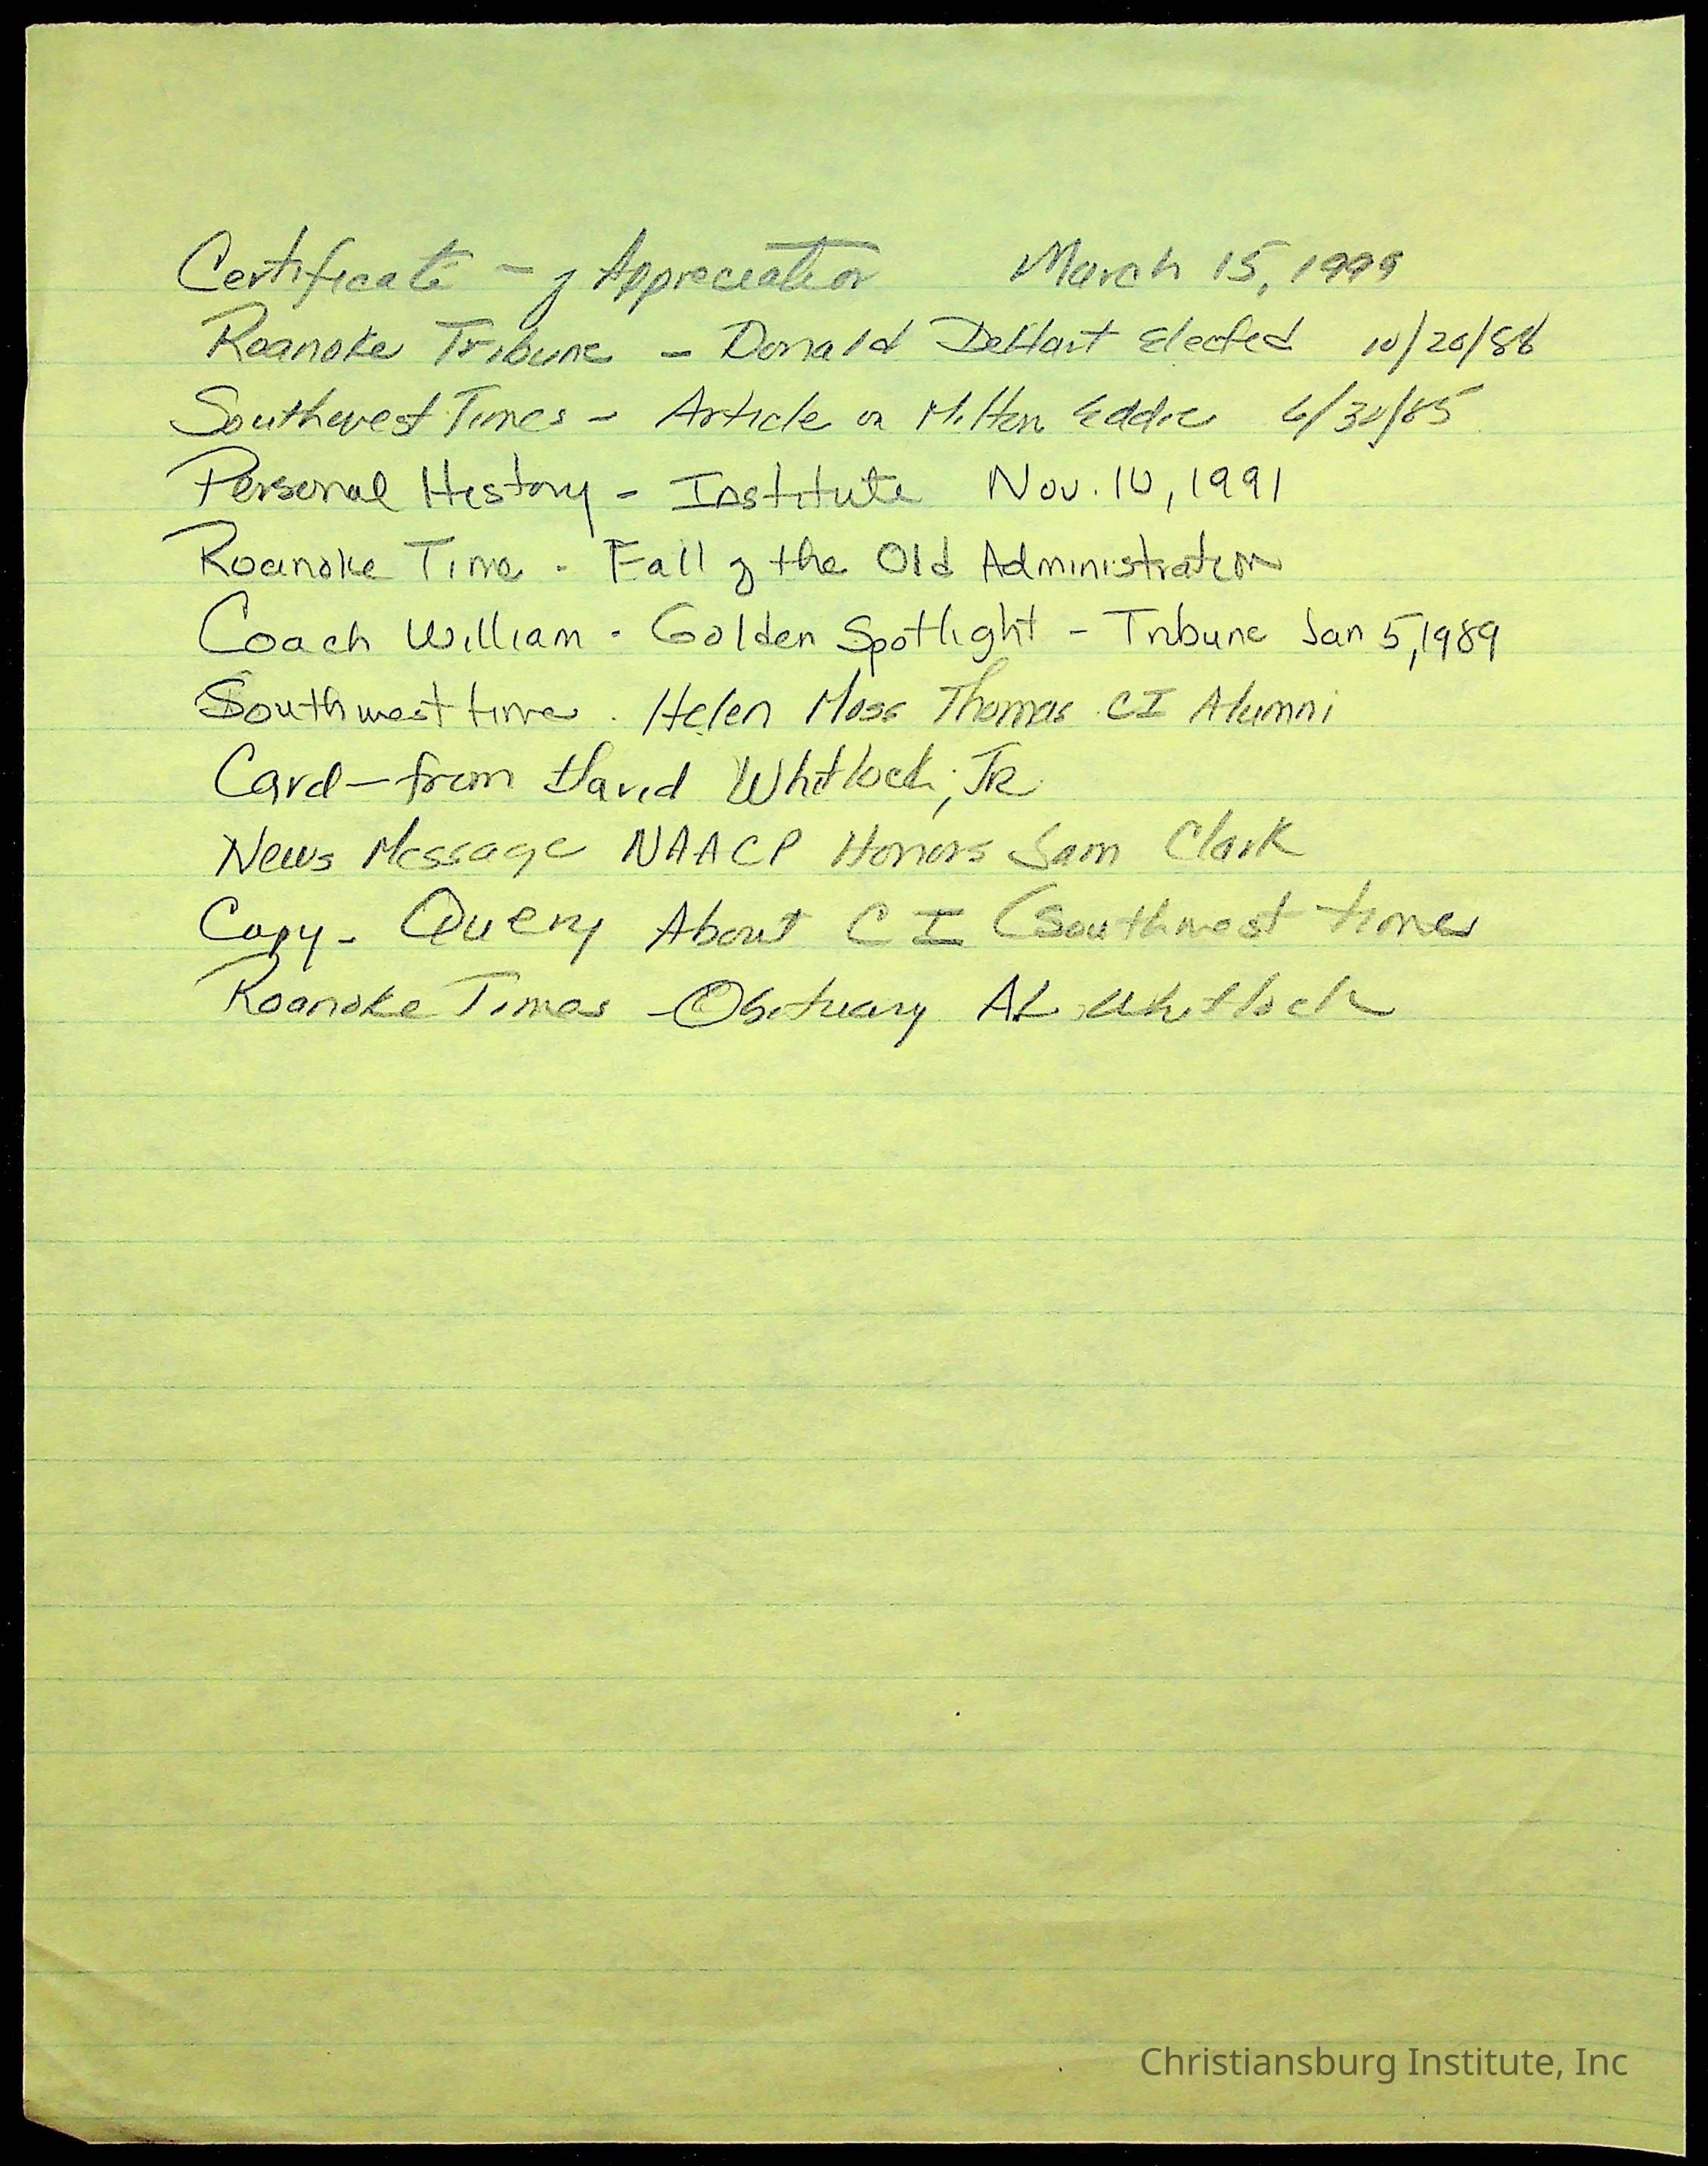 Certificate - of Appreciation March 15, 1999
Roanoke Tribune - Donald DeHart Elected 10/20/88
Southwest Times - Article on Milton Eddie 6/30/85
Personal History - Institute Nov. 10, 1991
Roanoke Time - Fall of the Old Administration
Coach William - Golden Spotlight - Tribune Jan 5, 1989
Southwest time . Helen Moss Thomas CI Alumni
Card - from David Whitlock, Jr
News Message NAACP Honors Sam Clark
Copy - Query About CI (Southwest times
Roanoke Times - Obituary AL Whitlock
Christiansburg Institute, Inc